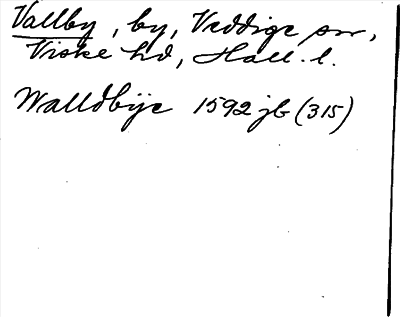 Vallby, by, Veddige sn,
Viske hd, Hall. l.
Walldbÿe 1592 jb (315)